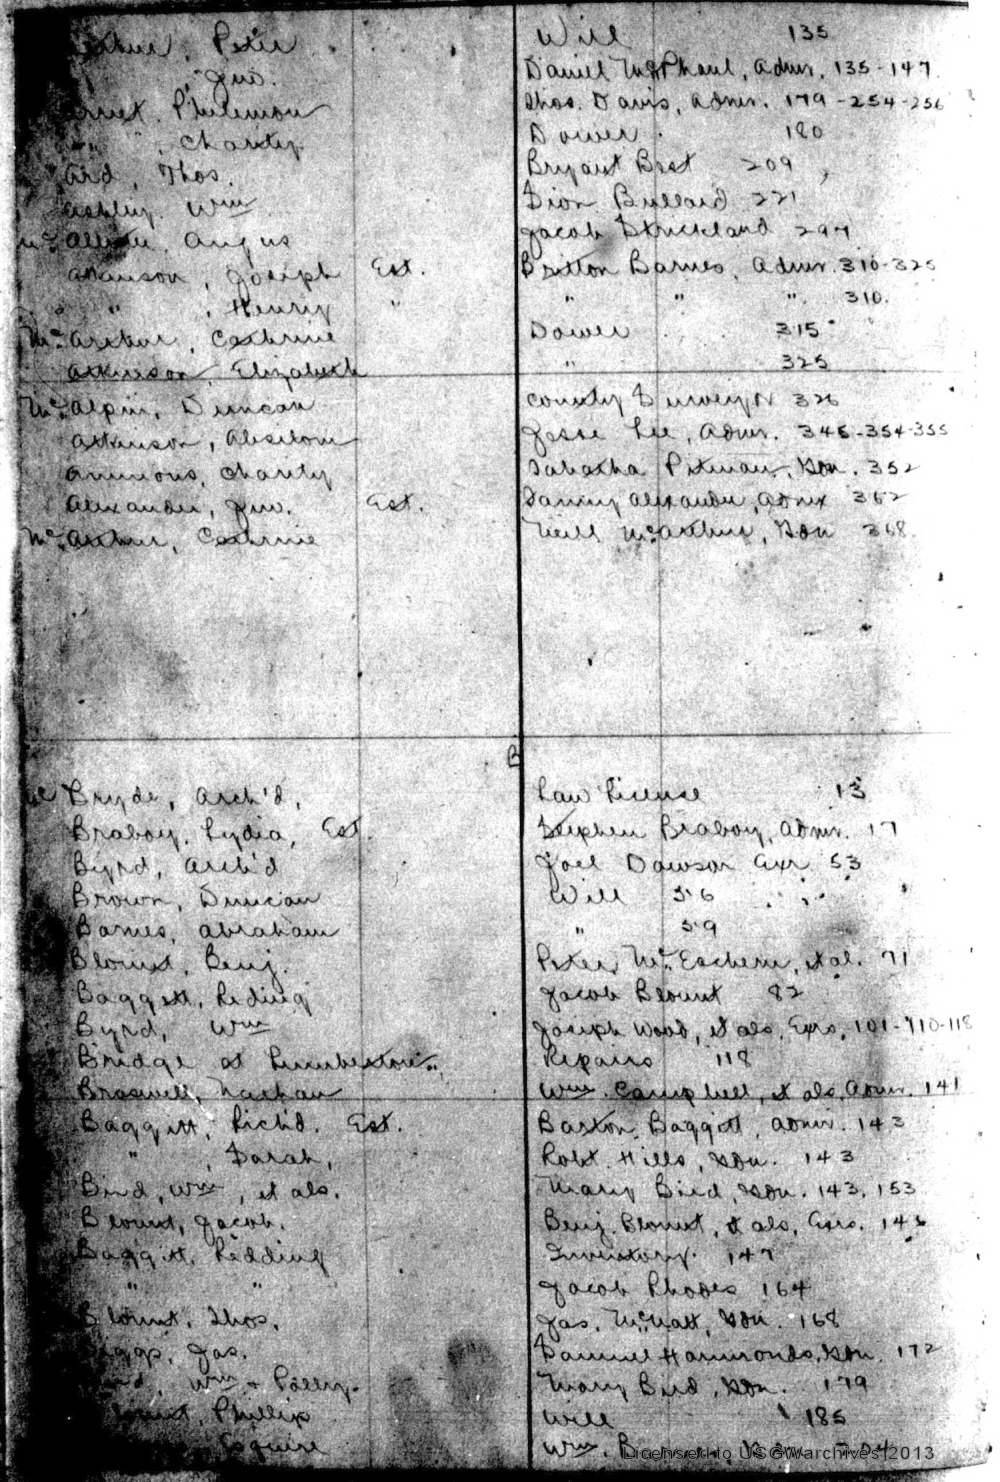 Peter Will 135
" Jno. Daniel McPhaul, Admr. 135-147
Philemon Thos. Davis, Admr. 179-254-256
" , Charity. Dower. 180
Ard, Thos. Bryant Best 209
Ashley, Wm Sion Bullard 221
Mc Angus Jacob Strickland 297
Atkinson, Joseph Est. Britton Barnes, Admr. 310-325
" , Henry " " " " 310.
Mc Arthur, Cathrine Dower 315
Atkinson, Elizabeth " 325
Mc Alpin, Duncan County Surveyor 326
Atkinson, Absilom Jesse Lee, Admr. 345-354-355
Ammons, Charity Tabatha Pitman, Gdn. 352
Alexander, Jno. Est. Alexander, Admx 362
Mc Arthur, Cathrine Neill McArthur, Gdn 368.
B
Mc Bryde, Arch'd, Law License 13
Braboy, Lydia, Est. Stephen Braboy, Admr. 17
Byrd, Arch'd Joel Dawson Exr 53
Brown, Duncan Will 56
Barnes, Abraham " 59
Blount, Benj. Peter McEachern, et al. 71
Baggett, Reding Jacob Blount 82
Byrd, Wm Joseph Wood, et als, Exrs. 101-110-118
Bridge at Lumberton. Repairs 118
Braswell, Nathan Wm. Campbell, et als, Admr. 141
Baggett, Rich'd. Est. Barton Baggett, Admr. 143
" , Sarah, Robt. Hills, Gdn. 143
Bird, Wm, et als. Mary Bird, Gdn. 143, 153
Blount, Jacob. Benj. Blount, et als, Exrs. 146
Baggitt, Redding Inventory. 147
" " Jacob Rhodes 164
Blount, Thos, Jas. McNatt, Gdn. 168
Jas. Samuel Hammonds, Gdn. 172
Wm + Polly. Mary Bird, Gdn. 179
Phillip Will 185
Esquire Wm. 204
Licensed to USGWarchives 2013